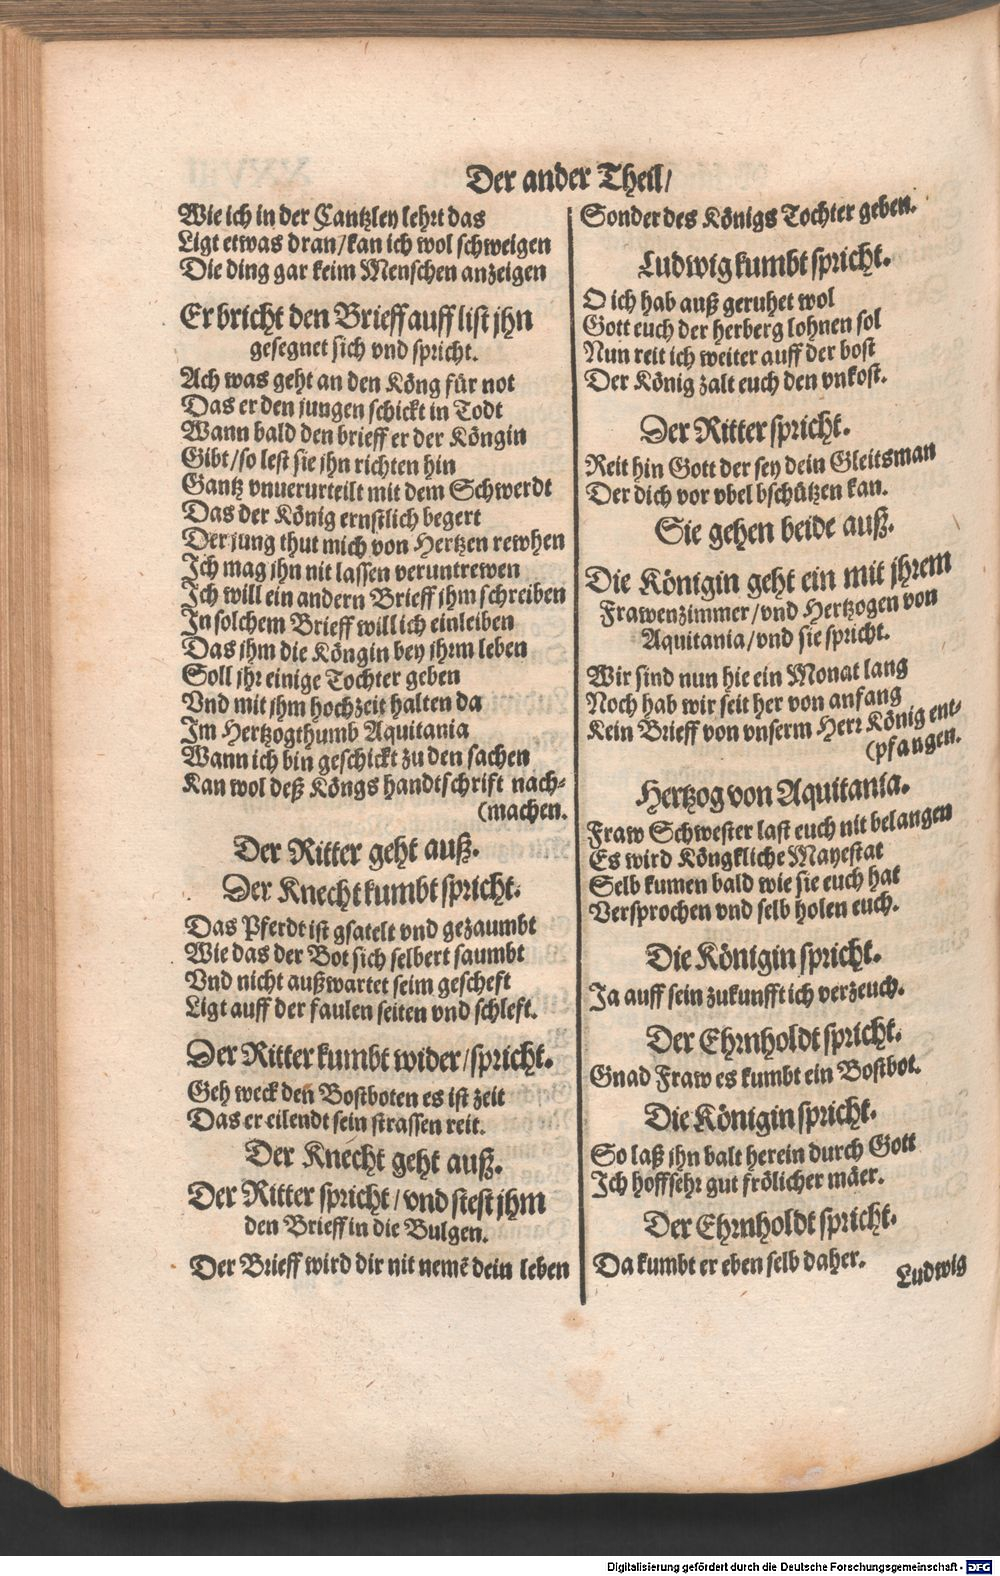 Der ander Theil/
Wie ich in der Cantzley lehrt das
Ligt etwas dran/kan ich wol schweigen
Die ding gar keim Menschen anzeigen
Er bricht den Brieff auff list jhn
gesegnet sich vnd spricht.
Ach was geht an den Köng für not
Das er den jungen schickt in Todt
Wann bald den brieff er der Köngin
Gibt/so lest sie jhn richten hin
Gantz vnuerurteilt mit dem Schwerdt
Das der König ernstlich begert
Der jung thut mich von Hertzen rewhen
Ich mag jhn nit lassen veruntrewen
Ich will ein andern Brieff jhm schreiben
In solchem Brieff will ich einleiben
Das jhm die Köngin bey jhrm leben
Soll jhr einige Tochter geben
Vnd mit jhm hochzeit halten da
Im Hertzogthumb Aquitania
Wann ich bin geschickt zu den sachen
Kan wol deß Köngs handtschrift nach-
(machen.
Der Ritter geht auß.
Der Knecht kumbt spricht.
Das Pferdt ist gsatelt vnd gezaumbt
Wie das der Bot sich selbert saumbt
Vnd nicht außwartet seim gescheft
Ligt auff der faulen seiten vnd schleft.
Der Ritter kumbt wider/spricht.
Geh weck den Bostboten es ist zeit
Das er eilendt sein strassen reit.
Der Knecht geht auß.
Der Ritter spricht/vnd stest jhm
den Brieff in die Bulgen.
Der Brieff wird dir nit nemē dein leben
Sonder des Königs Tochter geben.
Ludwig kumbt spricht.
O ich hab auß geruhet wol
Gott euch der herberg lohnen sol
Nun reit ich weiter auff der bost
Der König zalt euch den vnkost.
Der Ritter spricht.
Reit hin Gott der sey dein Gleitsman
Der dich vor vbel bschützen kan.
Sie gehen beide auß.
Die Königin geht ein mit jhrem
Frawenzimmer/vnd Hertzogen von
Aquitania/vnd sie spricht.
Wir sind nun hie ein Monat lang
Noch hab wir seit her von anfang
Kein Brieff von vnserm Herr König ent-
(pfangen.
Hertzog von Aquitania.
Fraw Schwester last euch nit belangen
Es wird Köngkliche Mayestat
Selb kumen bald wie sie euch hat
Versprochen vnd selb holen euch.
Die Königin spricht.
Ja auff sein zukunfft ich verzeuch.
Der Ehrnholdt spricht.
Gnad Fraw es kumbt ein Bostbot.
Die Königin spricht.
So laß jhn balt herein durch Gott
Ich hoff sehr gut frölicher mäer.
Der Ehrnholdt spricht.
Da kumbt er eben selb daher.
Ludwig
Digitalisierung gefördert durch die Deutsche Forschungsgemeinschaft - DFG